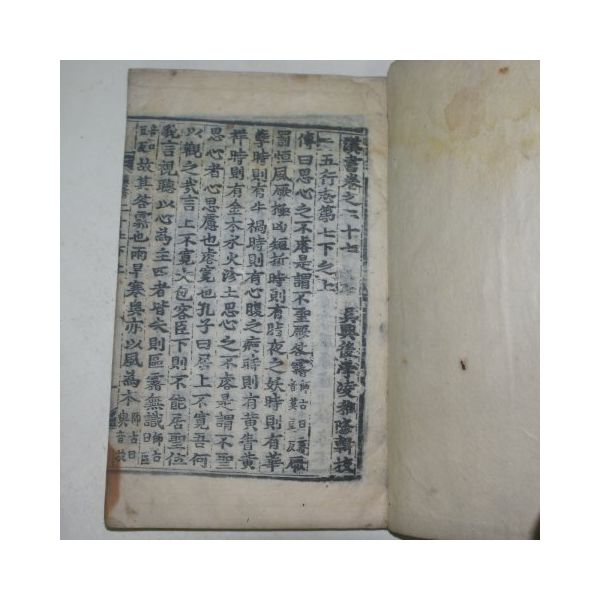 漢書卷之二十七 吳興後學凌稚隆輯校
五行志第七下之上
傳曰思心之不睿是謂不聖厥咎霿師古曰霿音莫豆反厥
罰恒風厥極凶短折時則有脂夜之妖時則有華
孼時則有牛禍時則有心腹之痾時則有黃眚黃
祥時則有金木水火沴土思心之不睿是謂不聖
思心者心思慮也睿寬也孔子曰居上不寬吾何
以觀之哉言上不寬大包容臣下則不能居聖位
貌言視聽以心為主四者皆失則區霿無識師古曰區
音
故其咎霿也雨旱寒奧亦以風為本師古曰奧音